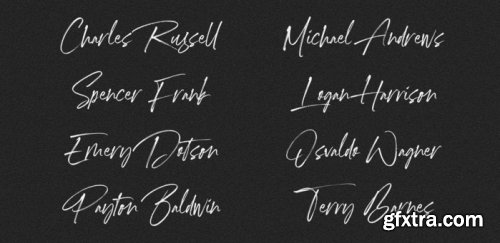 Charles Russell
Michael Andrews
Spencer Frank
Logan Harrison
Emery Dotson
Osvaldo Wagner
Payton Baldwin
Terry Barnes
gfxtra.com